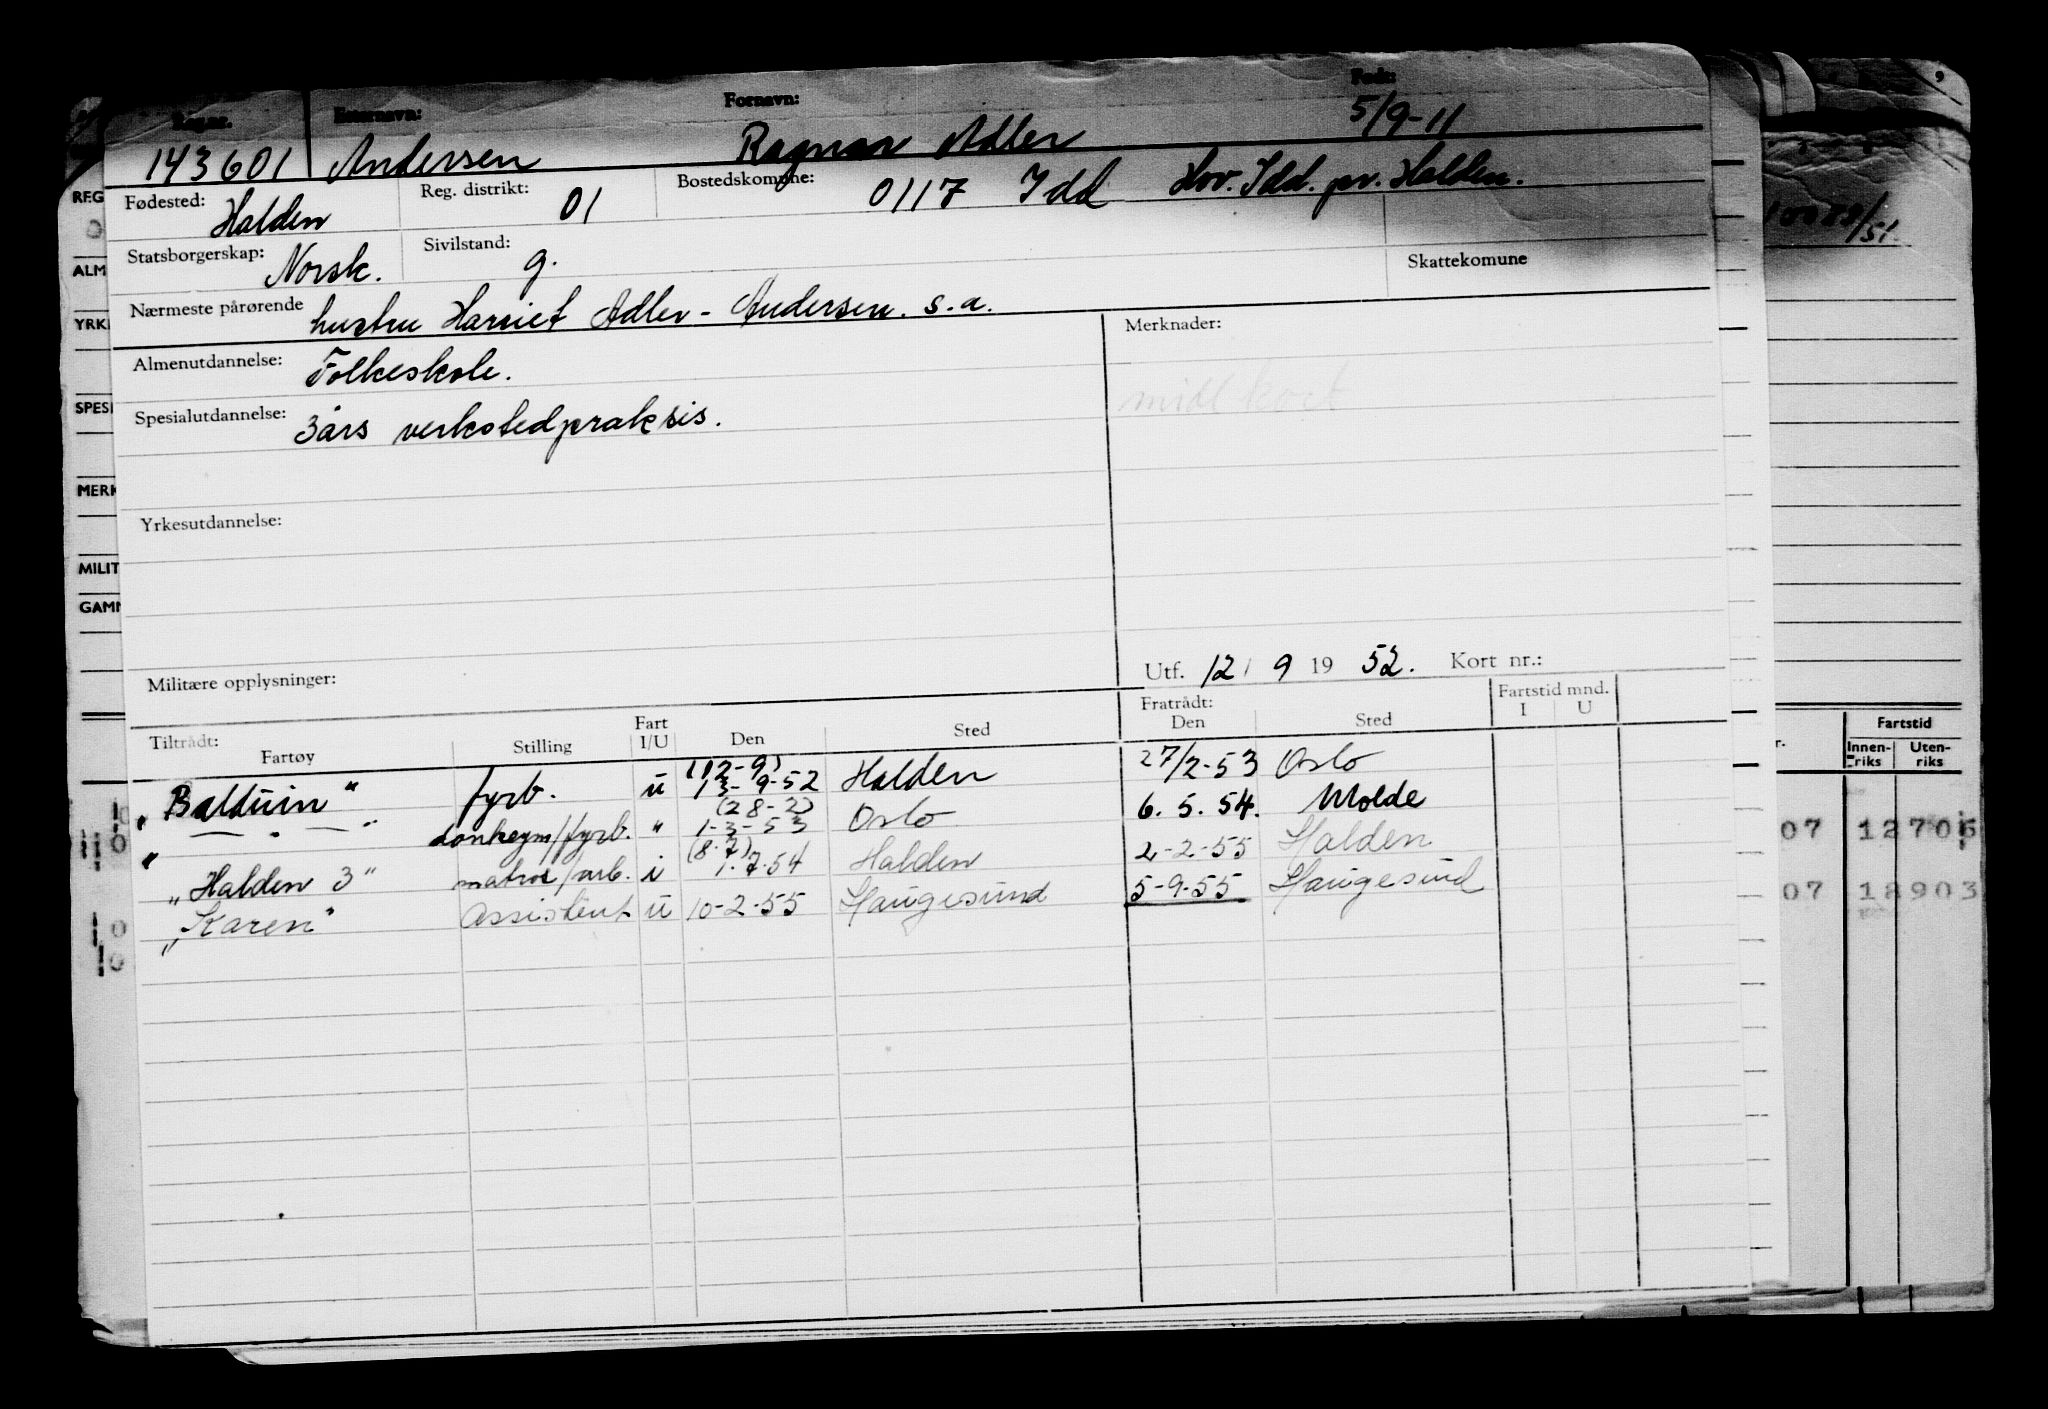 Reg.nr. Etternavn: Fornavn: Født:
143601 Andersen Ragnar Adler 5/9-11
Fødested: Halden Reg. distrikt: 01 Bostedskomune: 0117 Idd Hov. Idd. pr. Halden.
Statsborgerskap: Norsk. Sivilstand: g. Skattekomune
Nærmeste pårørende hustru Harriet Adler-Andersen. s.a.
Almenutdannelse: Folkeskole. Merknader:
midl kort
Spesialutdannelse: 3 års verkstedpraksis.
Yrkesutdannelse:
Militære opplysninger: Utf. 12/ 9 19 52. Kort nr.:
Tiltrådt: Fratrådt: Fartstid mnd.
Fartøy Stilling Fart I/U Den Sted Den Sted I U
(12-9)
"Balduin" fyrb. u 13-9-52 Halden 27/2-53 Oslo
(28-2)
" — " — " donkeym/fyrb. " 1-3-53 Oslo 6.5.54. Molde
(8.7)
"Halden 3" matros/arb. i 1.7.54 Halden 2-2-55 Halden
"Karen" Assistent u 10-2-55 Haugesund 5-9-55 Haugesund
REG
ALM
YRK
SPESI
MERK
MILIT
GAMM
/51.
Fartstid
Innen-riks Uten-riks
07 12705
07 18903